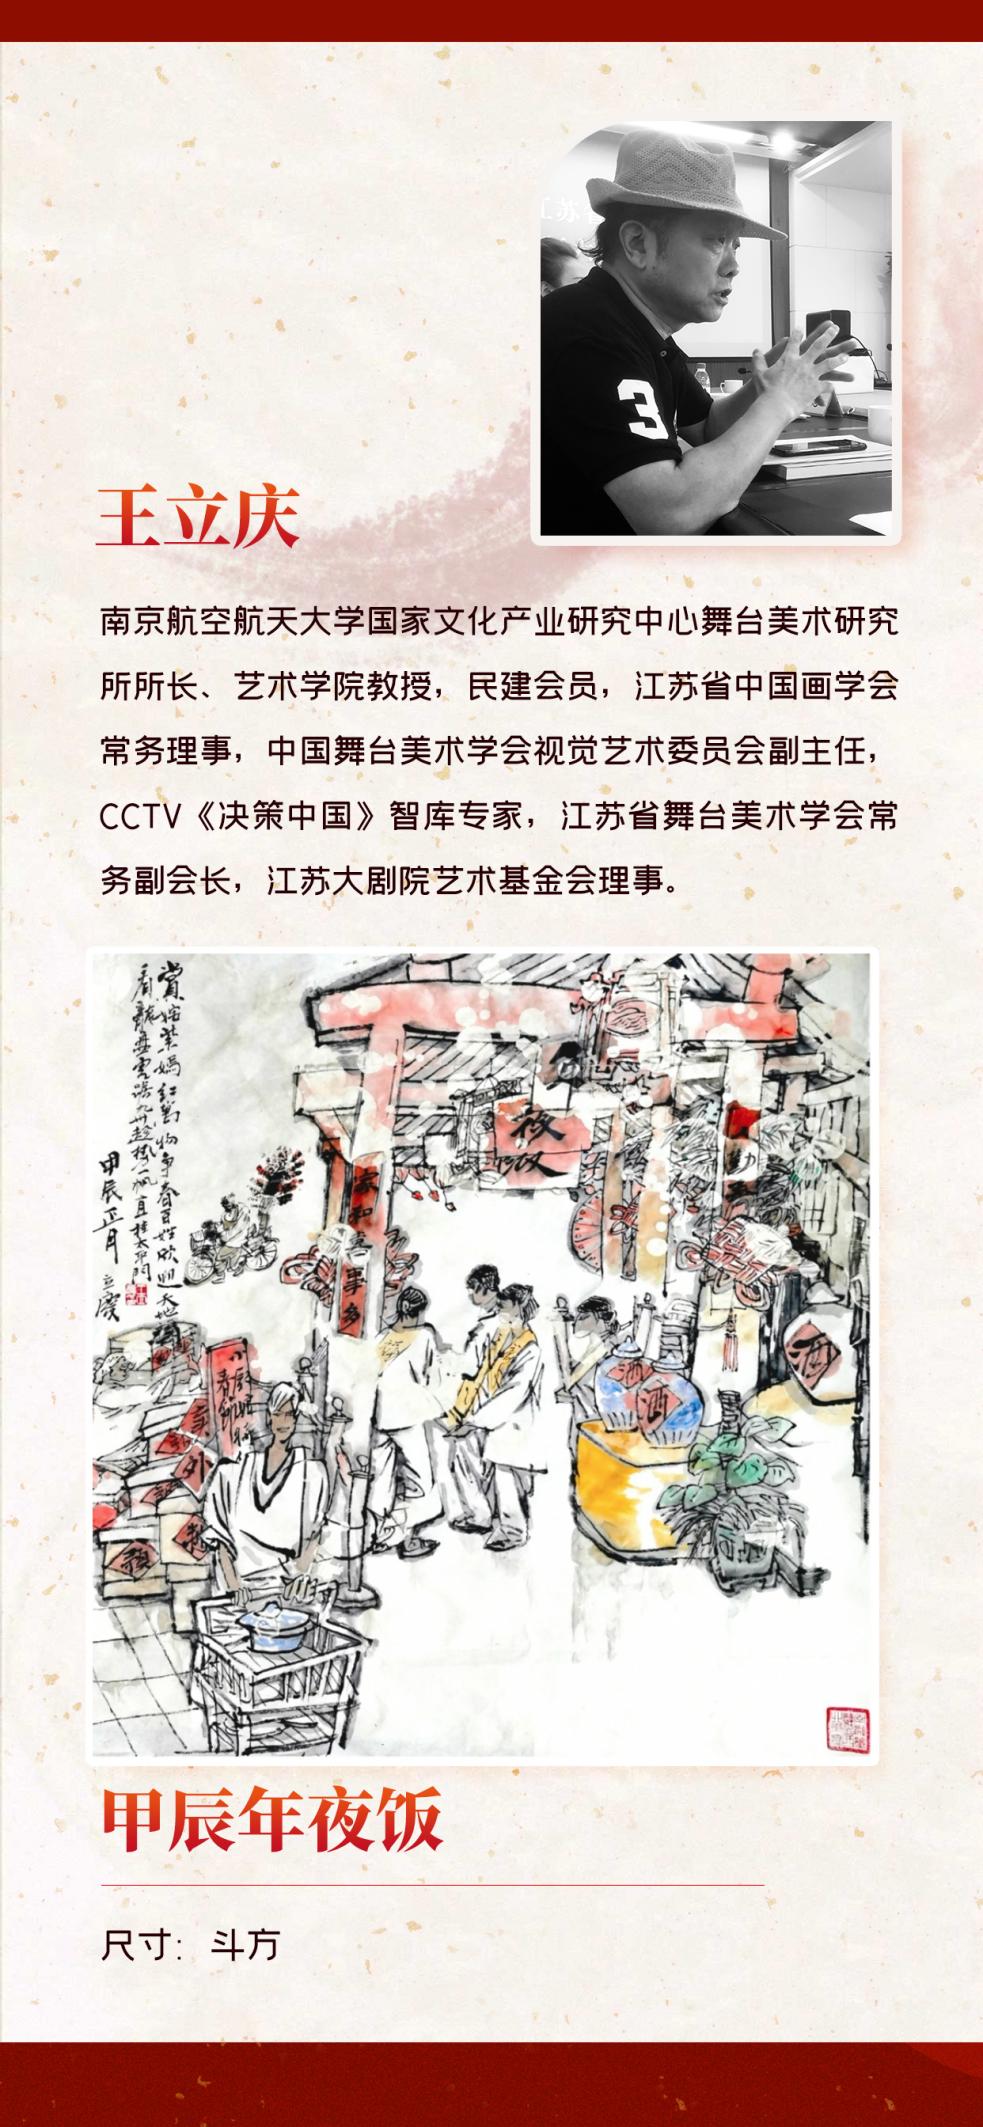 江苏省
3
王立庆
南京航空航天大学国家文化产业研究中心舞台美术研究
所所长、艺术学院教授，民建会员，江苏省中国画学会
常务理事，中国舞台美术学会视觉艺术委员会副主任，
CCTV《决策中国》智库专家，江苏省舞台美术学会常
务副会长，江苏大剧院艺术基金会理事。
紫嫣红万物争春百姓欣迎天地
看龍
甲辰正月
立慶
夜饭
家和喜事多
酒
酒
酒
外
甲辰年夜饭
尺寸：斗方